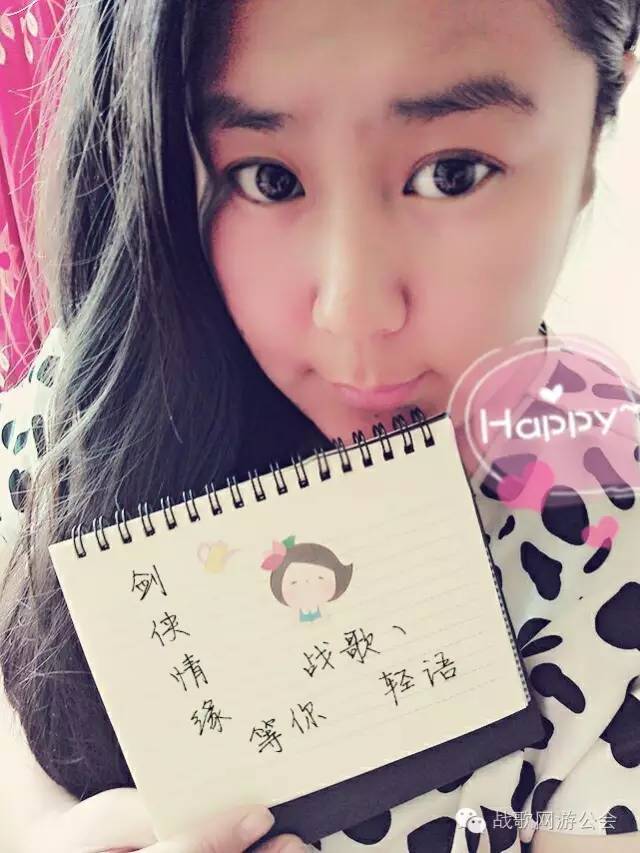 Happy~
剑侠情缘
战歌、
轻语
等你
战歌网游公会